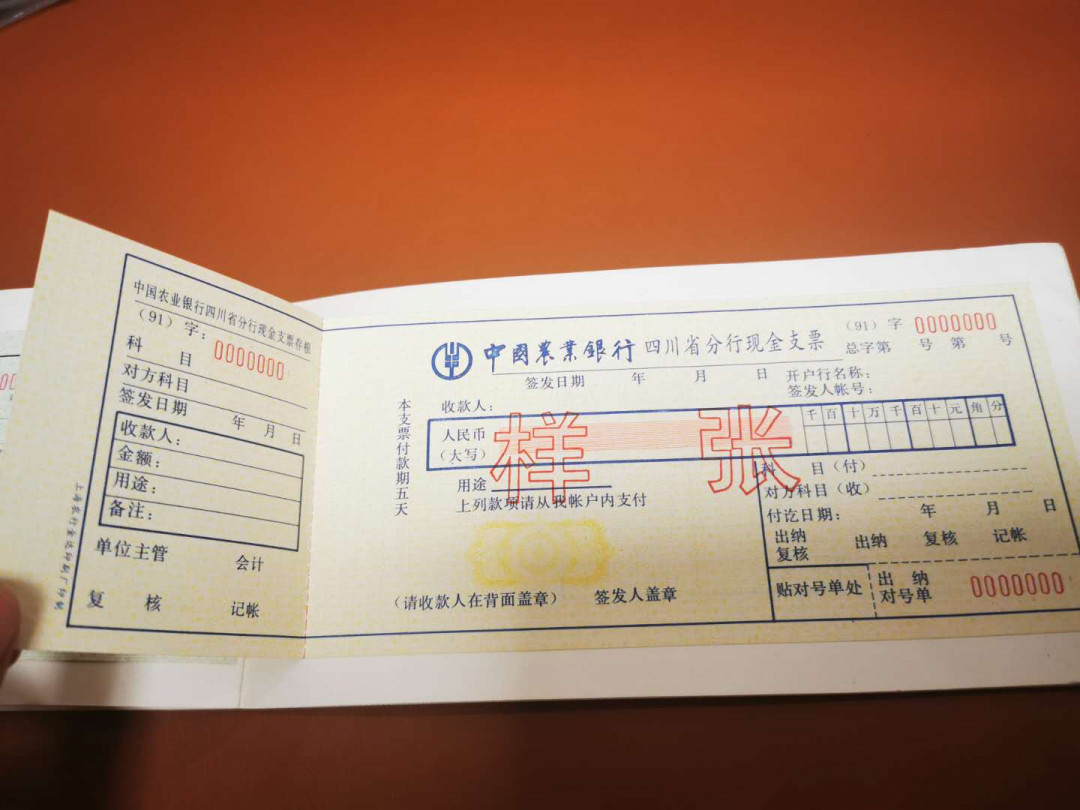 中国农业银行四川省分行现金支票存根
（91）字：
0000000
科 目
对方科目
签发日期 年 月 日
收款人：
金额：
用途：
备注：
单位主管 会计
复 核 记帐
中國農業銀行 四川省分行现金支票
（91）字 0000000
总字第 号 第 号
签发日期 年 月 日
开户行名称：
签发人帐号：
收款人：
本支票付款期五天
人民币
（大写）
样 张
千 百 十 万 千 百 十 元 角 分
用途
上列款项请从我帐户内支付
（请收款人在背面盖章） 签发人盖章
科 目（付）
对方科目（收）
付讫日期： 年 月 日
出纳 复核 出纳 复核 记帐
贴对号单处
出 纳
对号单
0000000